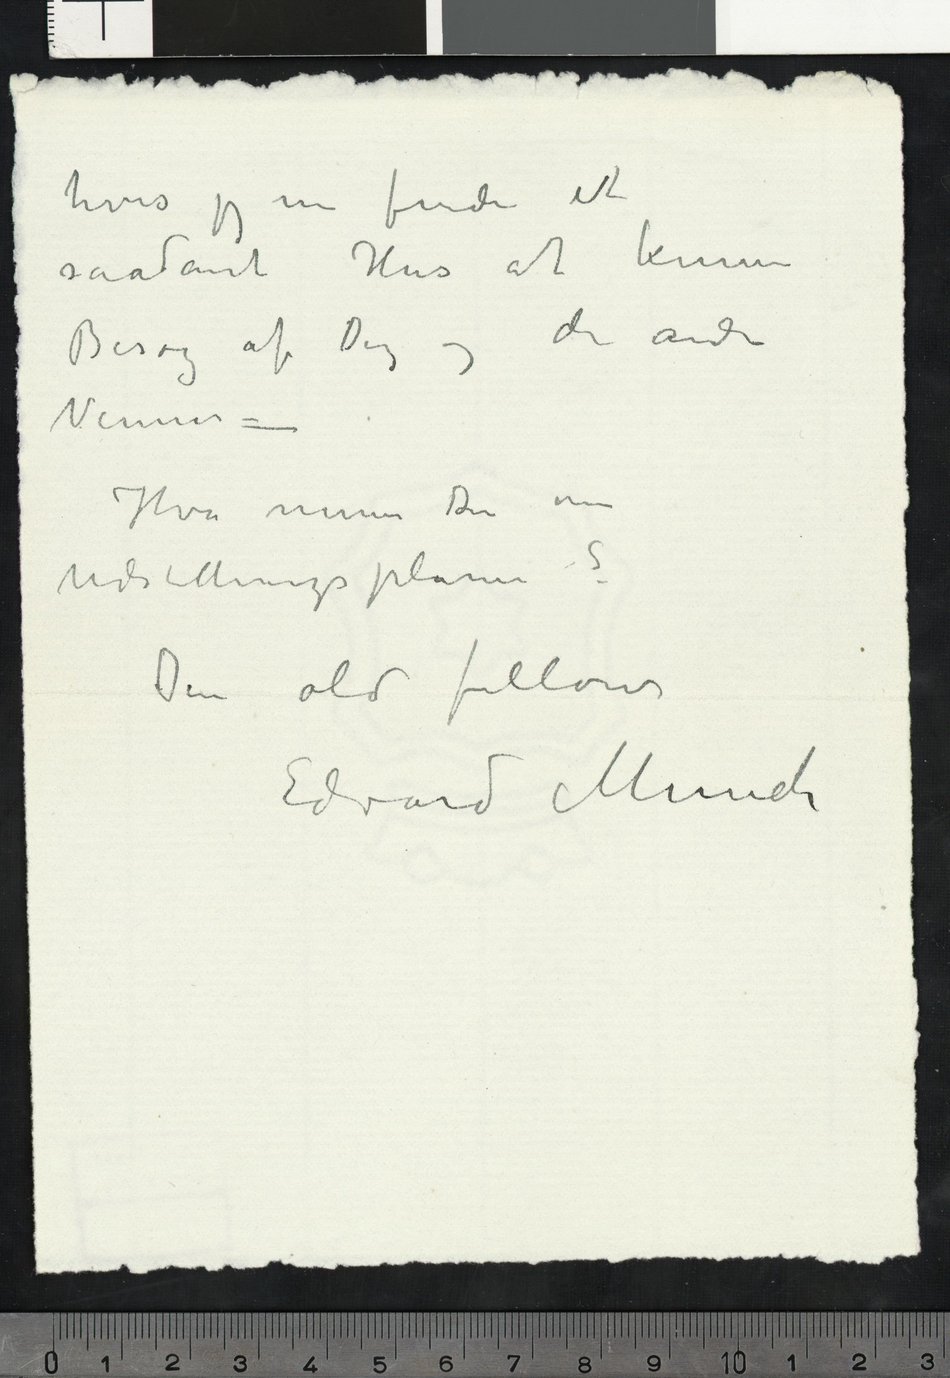 hvis jeg nu finder et
saadant Hus at kunne
Besøg af Dig og de andre
Venner =
Hva mener Du om
Udstillingsplanen ?
Din old fellow
Edvard Munch
0 1 2 3 4 5 6 7 8 9 10 1 2 3